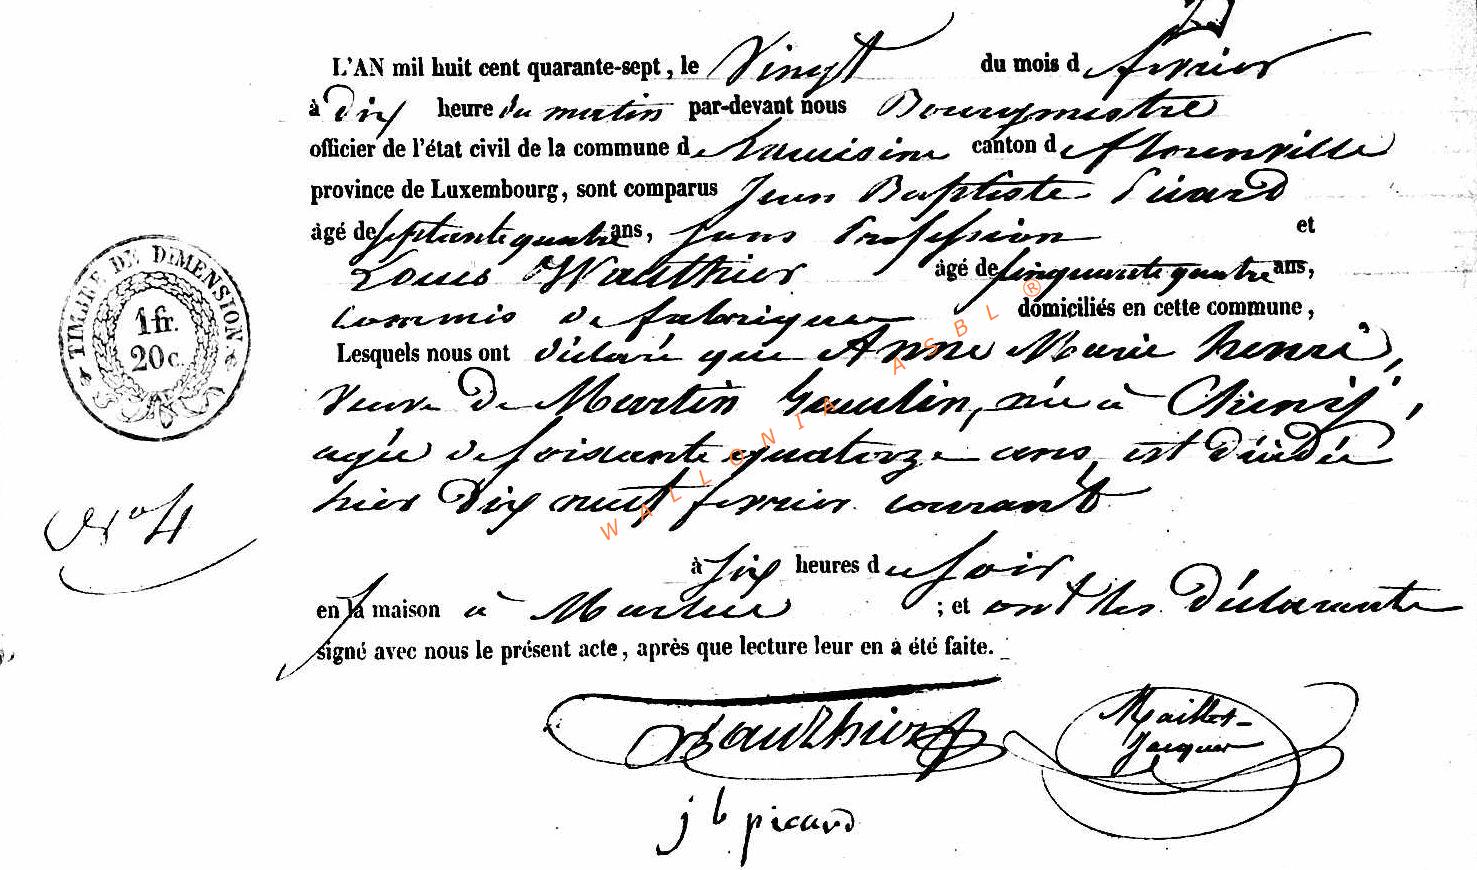 L'AN mil huit cent quarante-sept, le Vingt du mois de fevrier
à Dix heure du matin par-devant nous Bourgmestre
officier de l'état civil de la commune de Lacuisine canton de florenville
province de Luxembourg, sont comparus Jean Baptiste Picard
âgé de septante quatre ans, sans Profession et
Louis Wauthier âgé de cinquante quatre ans,
commis de fabrique domiciliés en cette commune,
Lesquels nous ont déclaré que Anne Marie henri,
Veuve de Martin Goulin, née à Chiny,
agée de soixante quatorze ans, est décédée
hier Dix neuf fevrier courant
à six heures du soir
en sa maison à Martué ; et ont les déclarants
signé avec nous le présent acte, après que lecture leur en a été faite.
TIMBRE DE DIMENSION
1 fr.
20 c.
N° 4
Wauthier
Maillet-
Jacques
j b picard
WALLONIA ASBL ®